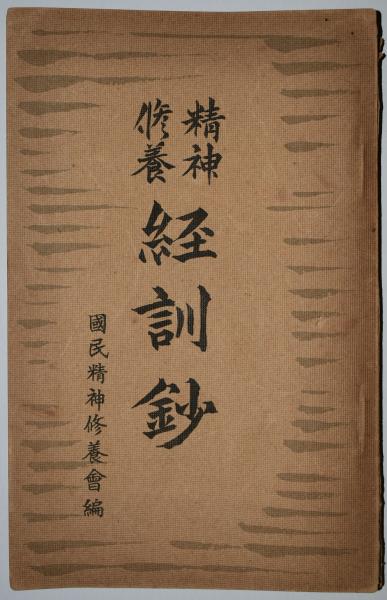 精神
修養
経訓鈔
國民精神修養會編